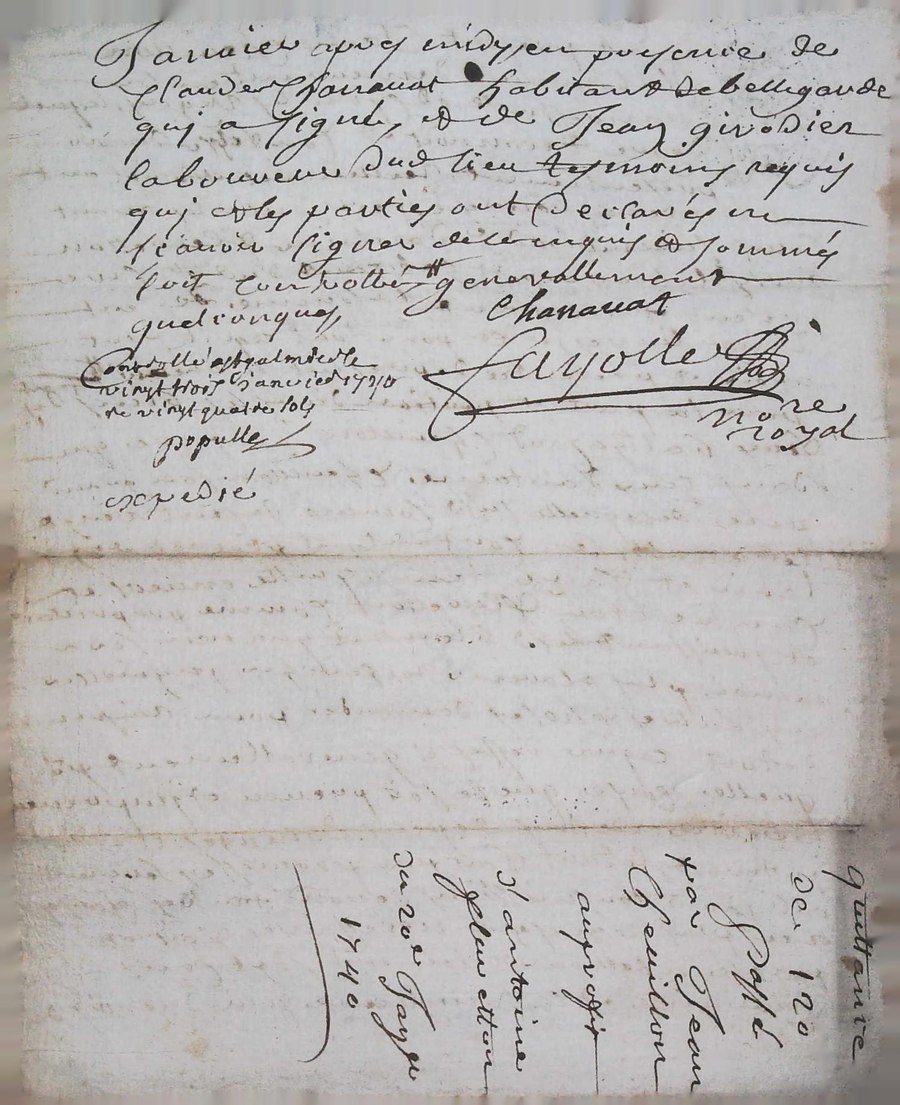 Janvier apres midy en presence de
Claude Chanavat habitant de bellegarde
qui a signé, et de Jean girodier
laboureur dud lieu tesmoins requis
qui et les parties ont declarés ne
scavoir signer de ce enquis et sommés
soit controllé generallement
quelconques
Chanavat
fayolle
no re
royal
Controllé a st galmier le
vingt trois janvier 1740
re vingt quatre sols
populle
expedié
quittance
de 120
passé
par Jean
Cheuillon
au profit
d'antoine
du 20e Janv
1740